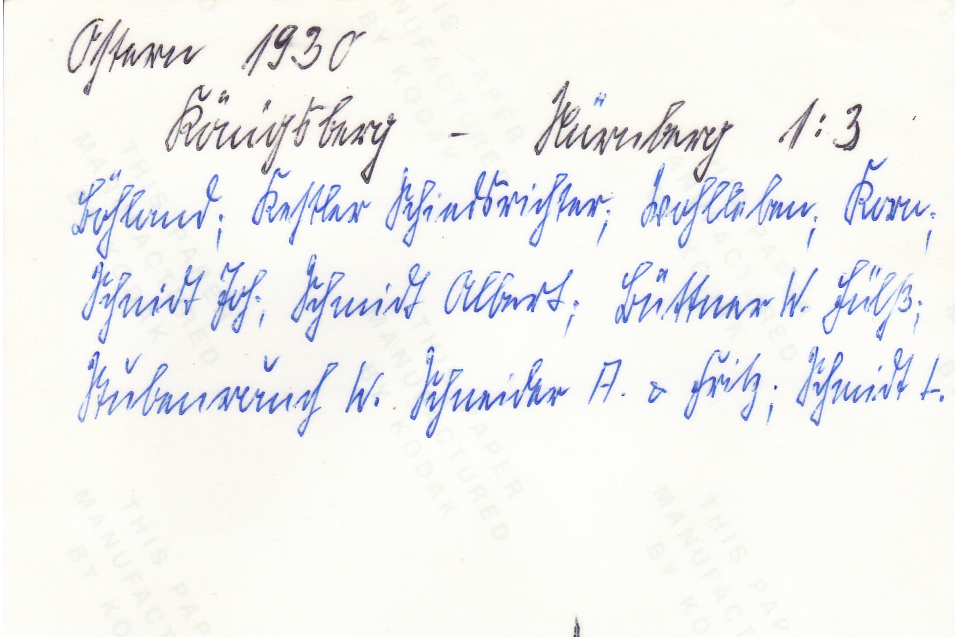 Ostern 1930
Königsberg - Nürnberg 1:3
Böhland; Keßler Schiedsrichter; Wohlleben; Korn;
Schmidt Joh; Schmidt Albert; Büttner W. Hülß;
Stubenrauch W. Schneider A. & Fritz; Schmidt L.
THIS PAPER
MANUFACTURED
BY KODAK